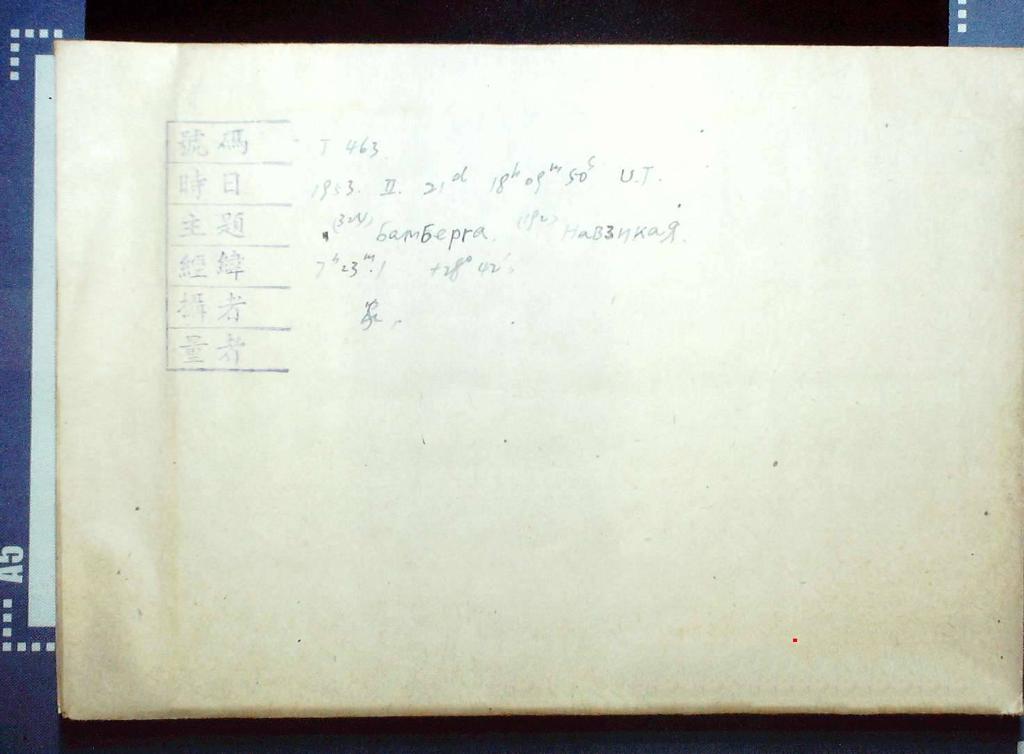 號碼 T 463
時日 1953. II. 21ᵈ 18ʰ 09ᵐ 50ˢ U.T.
主題 (324) Бамберга. (192) Навзикая.
經緯 7ʰ 23ᵐ.1 +28° 42'
攝者
量者
A5